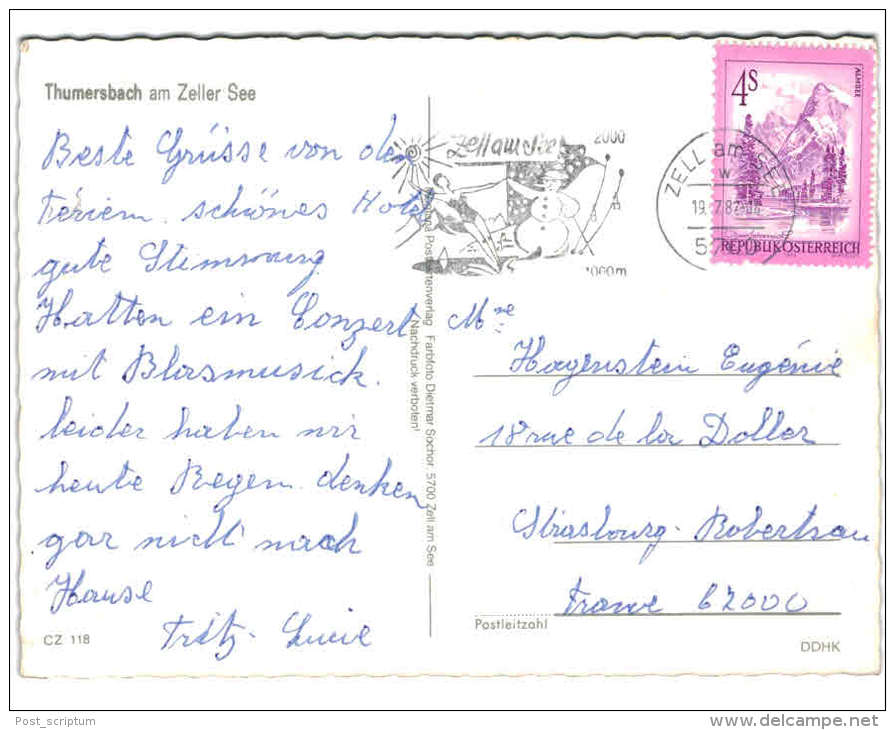 Thumersbach am Zeller See
Beste Grüsse von den
Ferien. schönes Hotel
gute Stimmung
Hatten ein Conzert
mit Blasmusick.
leider haben wir
heute Regen. denken
gar nicht nach
Hause
Fritz - Lucie
CZ 118
Postkartenverlag Farbfoto Dietmar Sochor, 5700 Zell am See
Nachdruck verboten!
Zell am See
2000
1000m
ZELL am SEE
19.7.82
4S
ALMSEE
REPUBLIK ÖSTERREICH
Mme
Hagenstein Eugénie
18 rue de la Doller
Strasbourg - Robertsau
France 67000
Postleitzahl
DDHK
Post_scriptum
www.delcampe.net